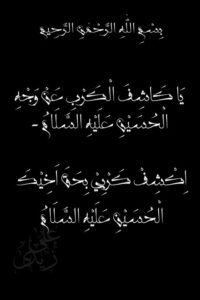 بِسْمِ اللّٰهِ الرَّحْمٰنِ الرَّحِيمِ
يَا كَاشِفَ الْكَرْبِ عَنْ وَجْهِ
الْحُسَيْنِ عَلَيْهِ السَّلَامُ -
اِكْشِفْ كَرْبِي بِحَقِّ اَخِيْكَ
الْحُسَيْنِ عَلَيْهِ السَّلَامُ